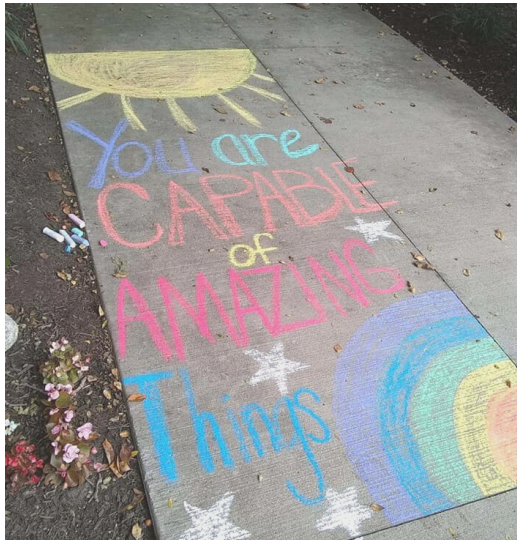 You are
CAPABLE
of
AMAZING
Things